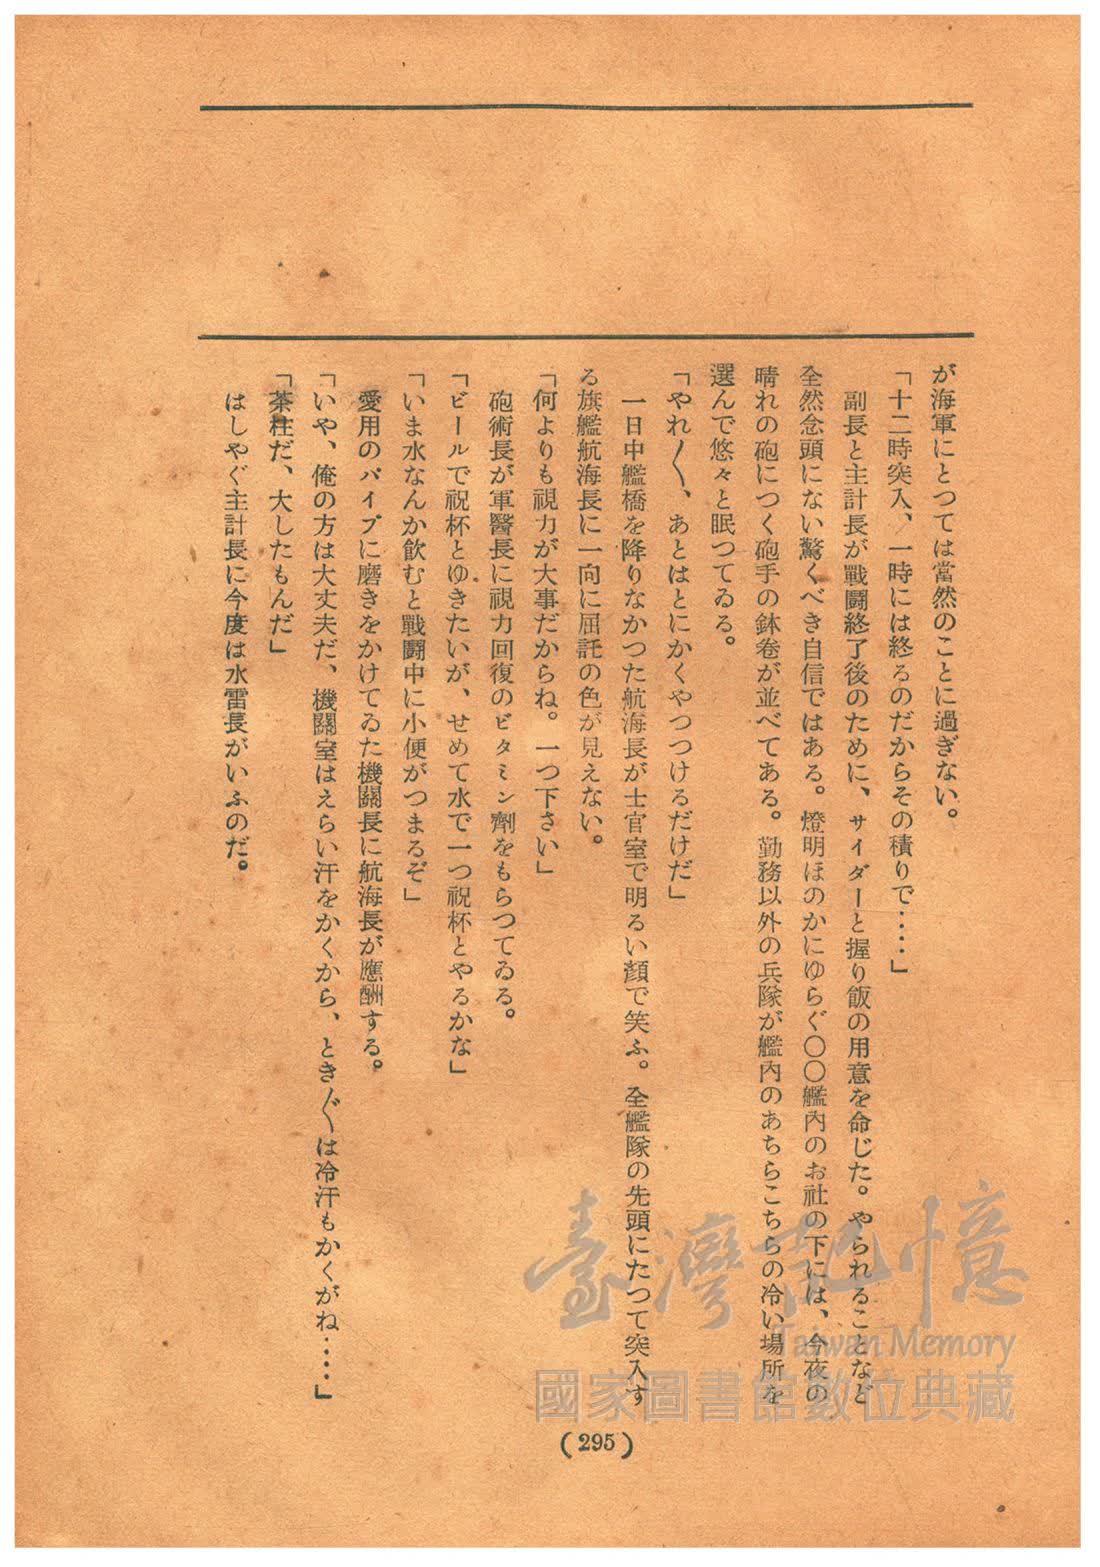 が海軍にとつては當然のことに過ぎない。
「十二時突入、一時には終るのだからその積りで‥‥」
副長と主計長が戰鬪終了後のために、サイダーと握り飯の用意を命じた。やられることなど
全然念頭にない驚くべき自信ではある。燈明ほのかにゆらぐ〇〇艦內のお社の下には、今夜の
晴れの砲につく砲手の鉢卷が並べてある。勤務以外の兵隊が艦內のあちらこちらの冷い場所を
選んで悠々と眠つてゐる。
「やれ〳〵、あとはとにかくやつつけるだけだ」
一日中艦橋を降りなかつた航海長が士官室で明るい顏で笑ふ。全艦隊の先頭にたつて突入す
る旗艦航海長に一向に屈託の色が見えない。
「何よりも視力が大事だからね。一つ下さい」
砲術長が軍醫長に視力回復のビタミン劑をもらつてゐる。
「ビールで祝杯とゆきたいが、せめて水で一つ祝杯とやるかな」
「いま水なんか飮むと戰鬪中に小便がつまるぞ」
愛用のパイプに磨きをかけてゐた機關長に航海長が應酬する。
「いや、俺の方は大丈夫だ、機關室はえらい汗をかくから、とき〴〵は冷汗もかくがね‥‥」
「茶柱だ、大したもんだ」
はしやぐ主計長に今度は水雷長がいふのだ。
(295)
臺灣記憶
Taiwan Memory
國家圖書館數位典藏